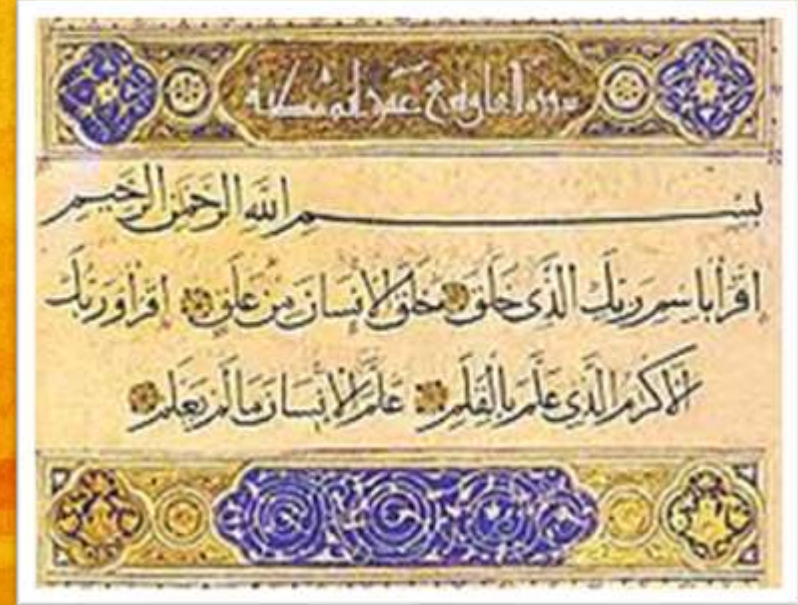 سورة مكية
بِسْمِ اللهِ الرَّحْمٰنِ الرَّحِيمِ
اِقْرَأْ بِاسْمِ رَبِّكَ الَّذِي خَلَقَ خَلَقَ الْاِنْسَانَ مِنْ عَلَقٍ اِقْرَأْ وَرَبُّكَ
الْاَكْرَمُ الَّذِي عَلَّمَ بِالْقَلَمِ عَلَّمَ الْاِنْسَانَ مَا لَمْ يَعْلَمْ